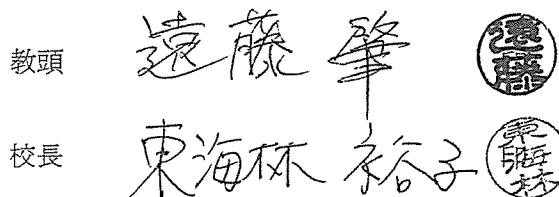 教頭 遠藤 肇 遠藤
校長 東海林 裕子 東海林